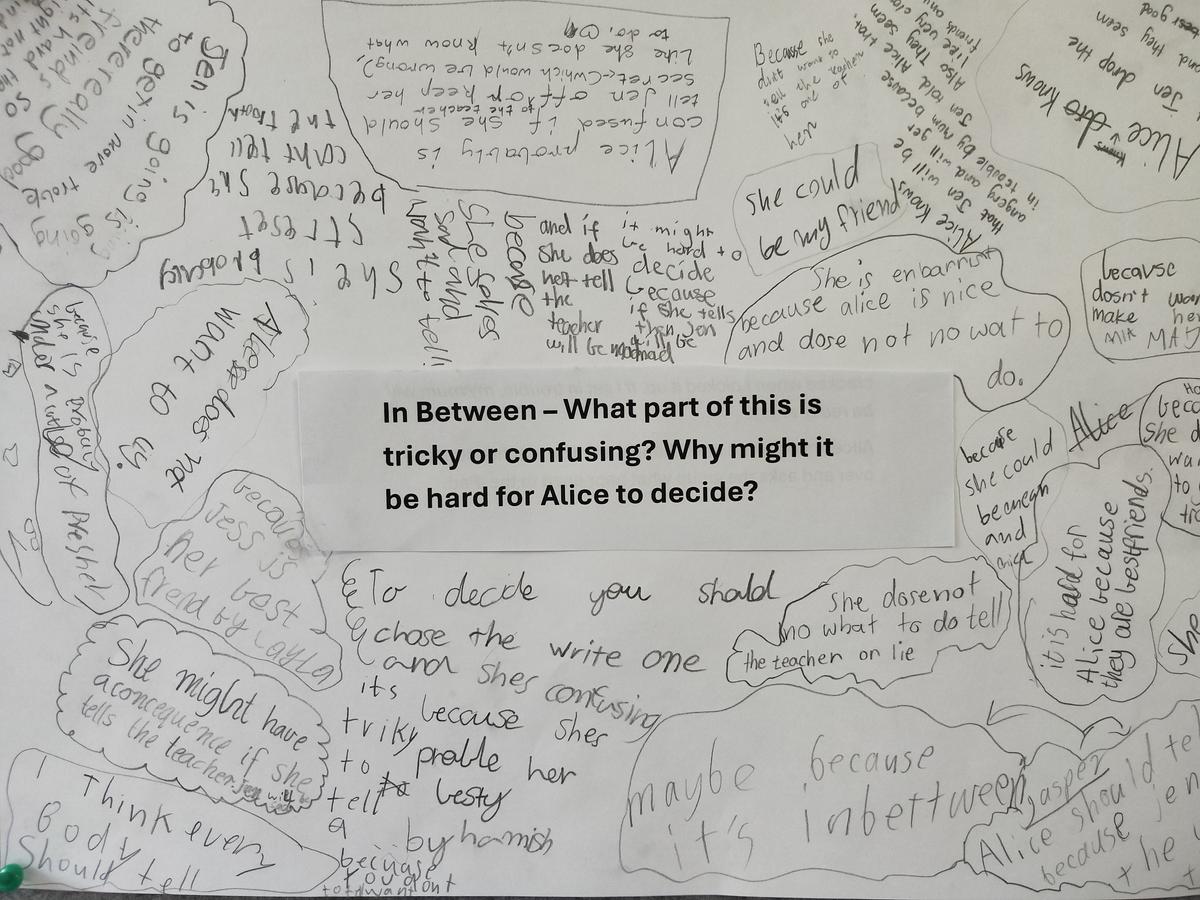 In Between – What part of this is
tricky or confusing? Why might it
be hard for Alice to decide?
Alice probably is
confused if she should
to the teacher
tell Jen off or keep her
secret, (which would be wrong),
Like she doesn't know what
to do.
Jen is going
to get in more
there really good
friends so
its hard
She is probaly
streset
because she
cant tell
the trooth
She looks
sad and
wont to tell!
becaue
and if
she does
not tell
the
teacher
will be mad
it might
be hard to
decide
because
if she tells
then Jen
will be
mad
Because she
didt want to
tell the teacher
its one of
her
she could
be my friend
Alice Knows
that Jen will be
angery and will get
in trouble by mum because
Jen told Alice that.
Also They seem
like very
friends
Alice Knows
Jen drop the
and they seem
good
She is enbarrust
because alice is nice
and dose not no wat to
do.
because
dosn't
make her
because
she is probaly
under
preshel
Alice does not
want to
because
Jess is
her best
frend by Layla
She might have
aconcequence if she
tells the teacher.
I Think every
Body
Should tell
To decide you should
chose the write one
and shes confusing
because shes
proble her
besty
by hamish
its
triky
to
tell
a
She dose not
no what to do tell
the teacher or lie
because
she could
and
Alice
it is hard for
Alice because
they are bestfriends.
maybe because
it's inbettween
Jasper
Alice should
because Jen
the